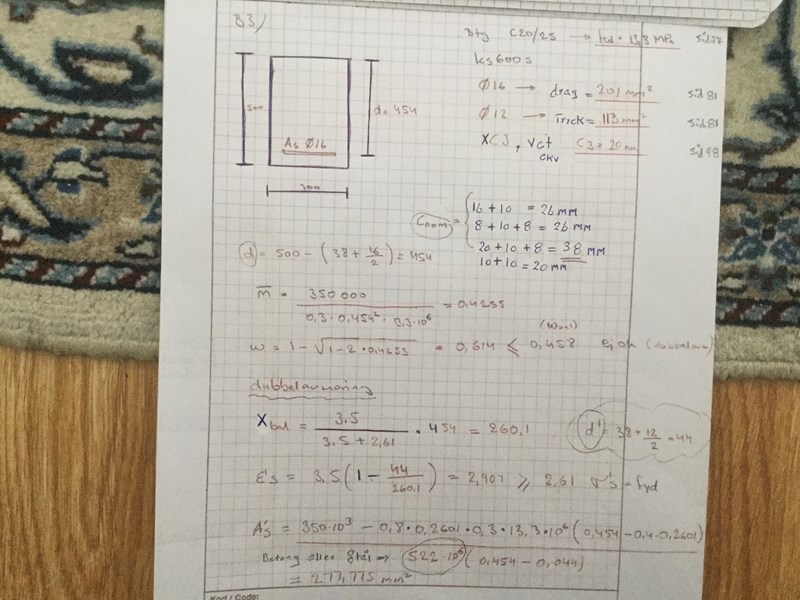 B3)
Btg C20/25 → fcd = 13,3 MPa
ks600s
Ø16 → drag = 201 mm² sid 81
500
d = 454
Ø12 → Tryck = 113 mm² sid 81
As Ø16
XC3, vct ekv C3 = 20 mm sid 98
300
Cnom =
16 + 10 = 26 mm
8 + 10 + 8 = 26 mm
20 + 10 + 8 = 38 mm
10 + 10 = 20 mm
d = 500 - (38 + 16/2) = 454
m̅ = 350 000 / (0,3 · 0,454² · 13,3 · 10⁶) = 0,4255
(ωbal)
ω = 1 - √(1 - 2 · 0,4255) = 0,614 ≤ 0,458 ej ok (dubbelarm)
dubbelarmering
Xbal = 3,5 / (3,5 + 2,61) · 454 = 260,1
d' = 38 + 12/2 = 44
ε's = 3,5(1 - 44/260,1) = 2,907 ≥ 2,61 σ's = fyd
A's = 350·10³ - 0,8·0,2601·0,3·13,3·10⁶(0,454 - 0,4·0,2601)
Betong eller Stål → 522·10⁶(0,454 - 0,044)
= 277,775 mm²
Kod / Code: